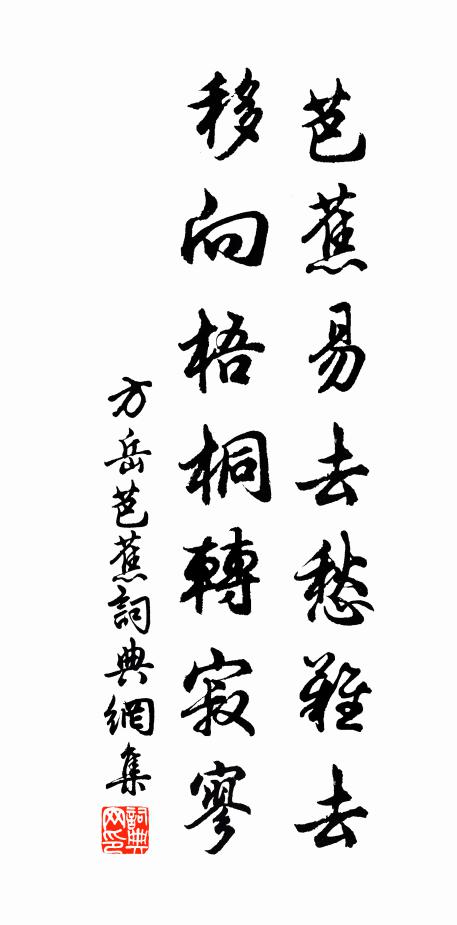 芭蕉易去愁難去
移向梧桐轉寂寥
方岳芭蕉詞典網集
詞典網印